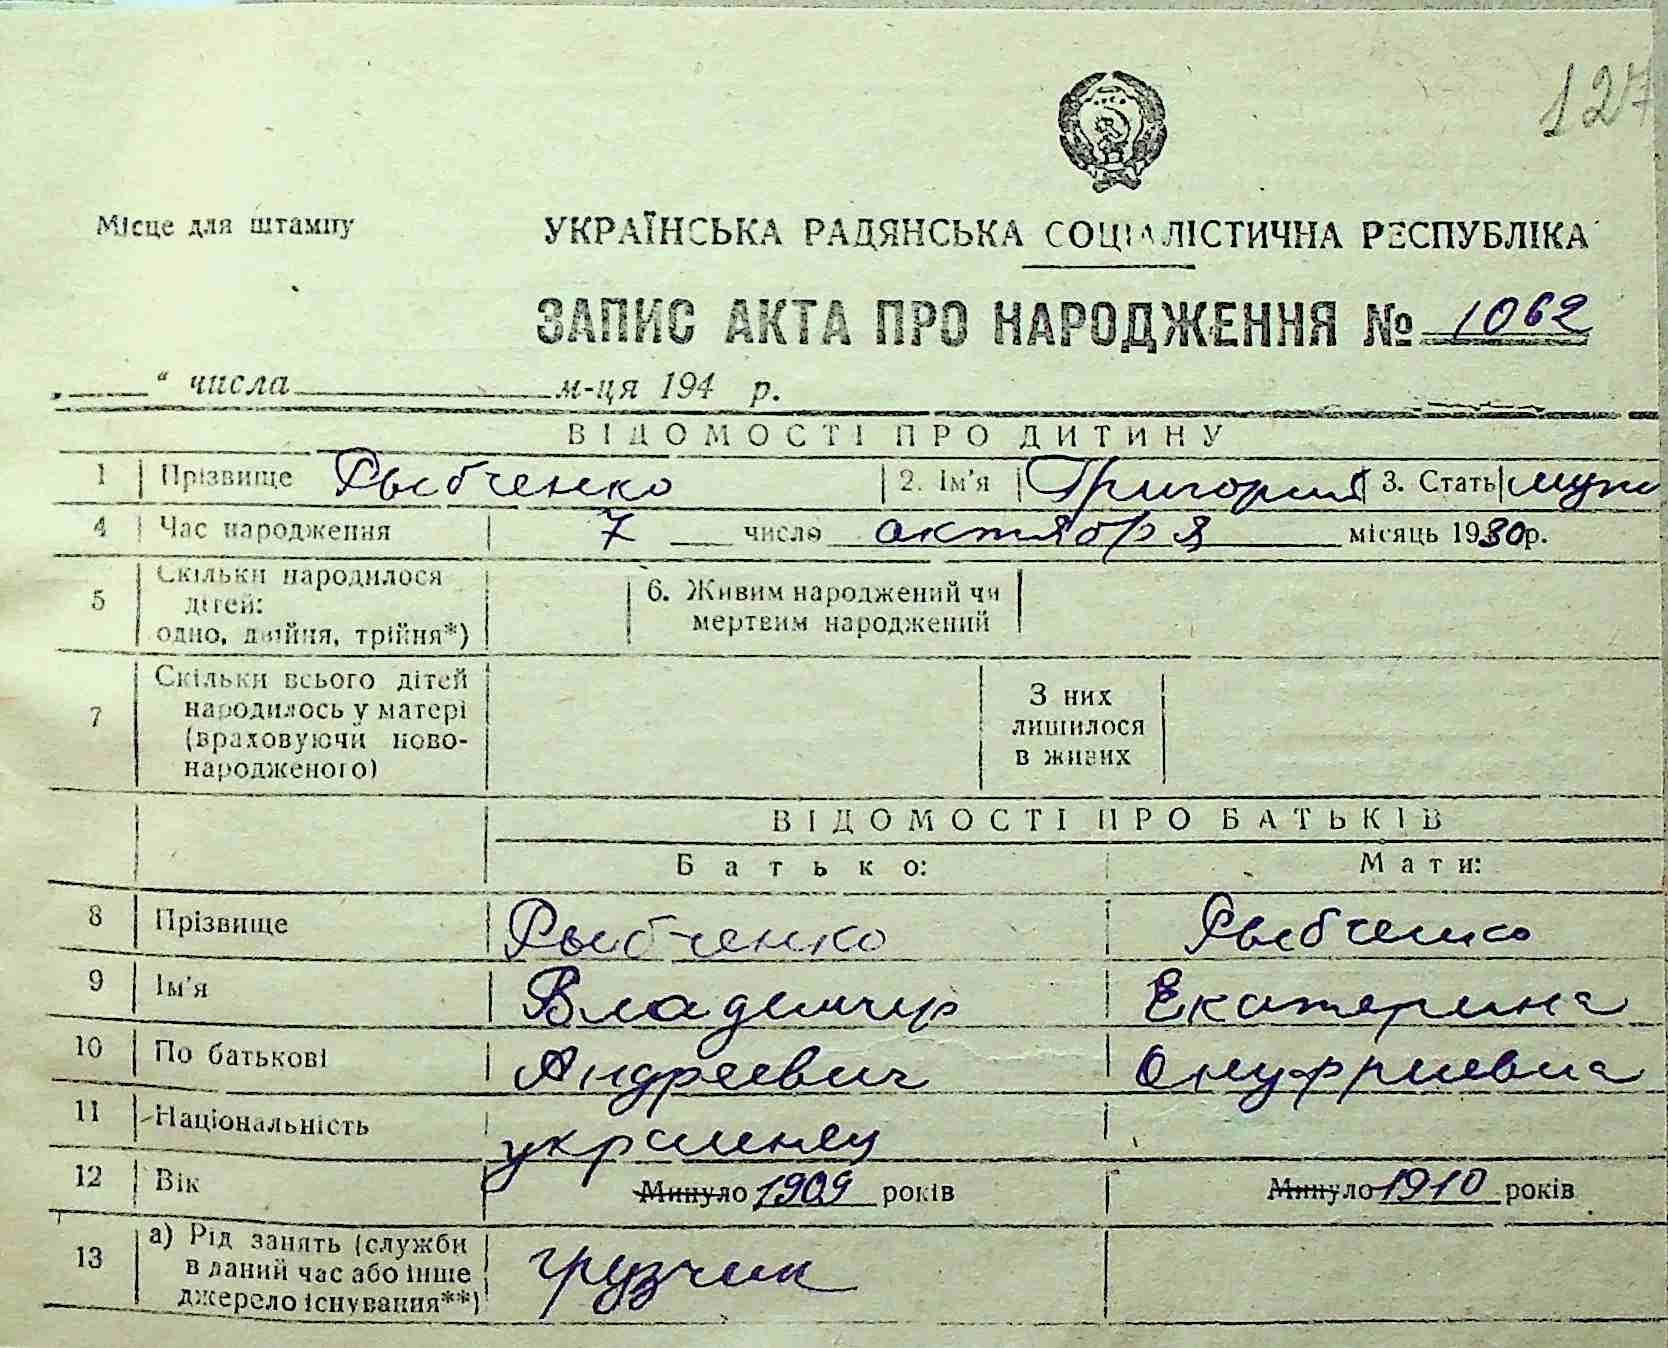 127
Місце для штампу
УКРАЇНСЬКА РАДЯНСЬКА СОЦІАЛІСТИЧНА РЕСПУБЛІКА
ЗАПИС АКТА ПРО НАРОДЖЕННЯ № 1062
„____“ числа ____ м-ця 194 р.
ВІДОМОСТІ ПРО ДИТИНУ
1 Прізвище Рыбченко 2. Ім'я Григорий 3. Стать муж
4 Час народження 7 число октября місяць 1930 р.
5 Скільки народилося дітей: одно, двійня, трійня*) 6. Живим народжений чи мертвим народжений
7 Скільки всього дітей народилось у матері (враховуючи ново-народженого) З них лишилося в живих
ВІДОМОСТІ ПРО БАТЬКІВ
Батько: Мати:
8 Прізвище Рыбченко Рыбченко
9 Ім'я Владимир Екатерина
10 По батькові Андреевич Онуфриевна
11 Національність украинец
12 Вік Минуло 1909 років Минуло 1910 років
13 а) Рід занять (служби в даний час або інше джерело існування**) грузчик